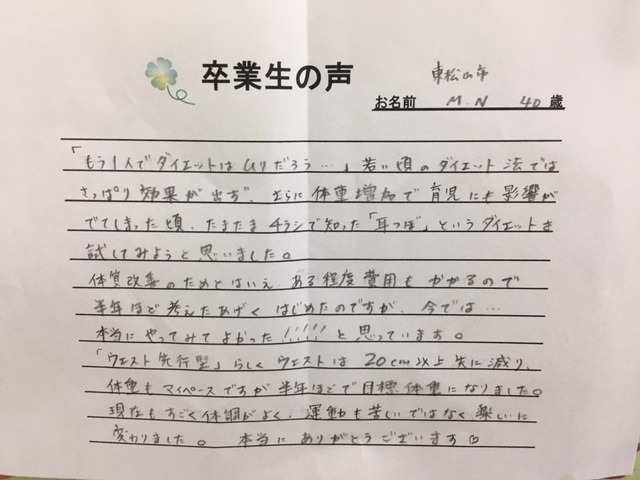 卒業生の声
東松山市
お名前 M.N 40歳
「もう1人でダイエットはムリだろう…」若い頃のダイエット法では
さっぱり効果が出ず、さらに体重増加で育児にも影響が
でてしまった頃、たまたまチラシで知った「耳つぼ」というダイエットを
試してみようと思いました。
体質改善のためとはいえ、ある程度費用もかかるので
半年ほど考えたあげくはじめたのですが、今では…
本当にやってみてよかった!!!!!と思っています。
「ウエスト先行型」らしくウエストは20cm以上先に減り、
体重もマイペースですが半年ほどで目標体重になりました。
現在もすごく体調がよく、運動も苦しいではなく楽しいに
変わりました。 本当にありがとうございます♡